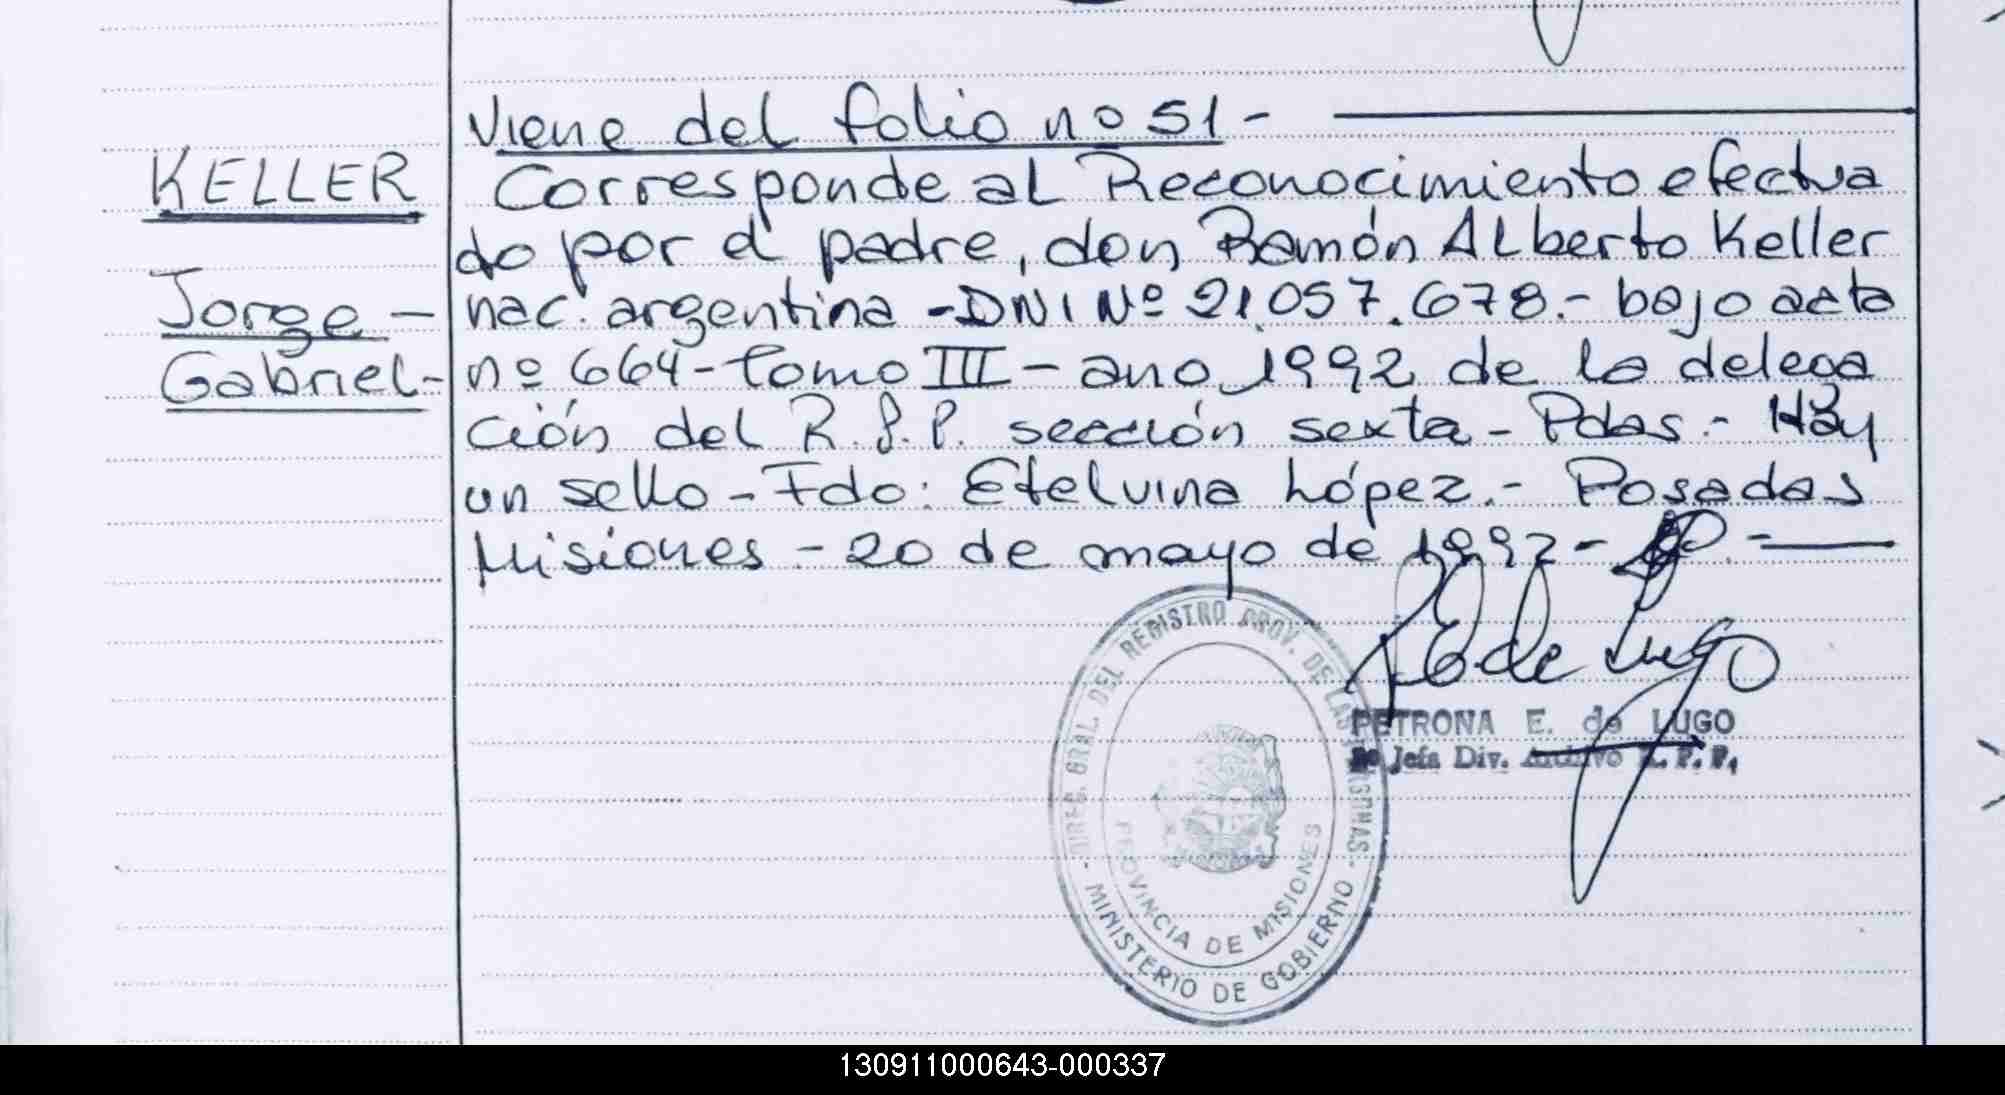 Viene del folio nº 51 -
KELLER
Corresponde al Reconocimiento efectua
do por el padre, don Ramón Alberto Keller
Jorge -
nac. argentina - DNI Nº 21.057.678.- bajo acta
Gabriel -
nº 664 - Tomo III - ano 1992 de la delega
ción del R.P.P. sección sexta - Pdas.- Hay
un sello - Fdo: Etelvina López.- Posadas
Misiones - 20 de mayo de 1992 -
de Lugo
PETRONA E. de LUGO
2º Jefa Div. Archivo R.P.P.
DIREC. GRAL. DEL REGISTRO PROV. DE LAS PERSONAS.
- MINISTERIO DE GOBIERNO -
PROVINCIA DE MISIONES
130911000643-000337